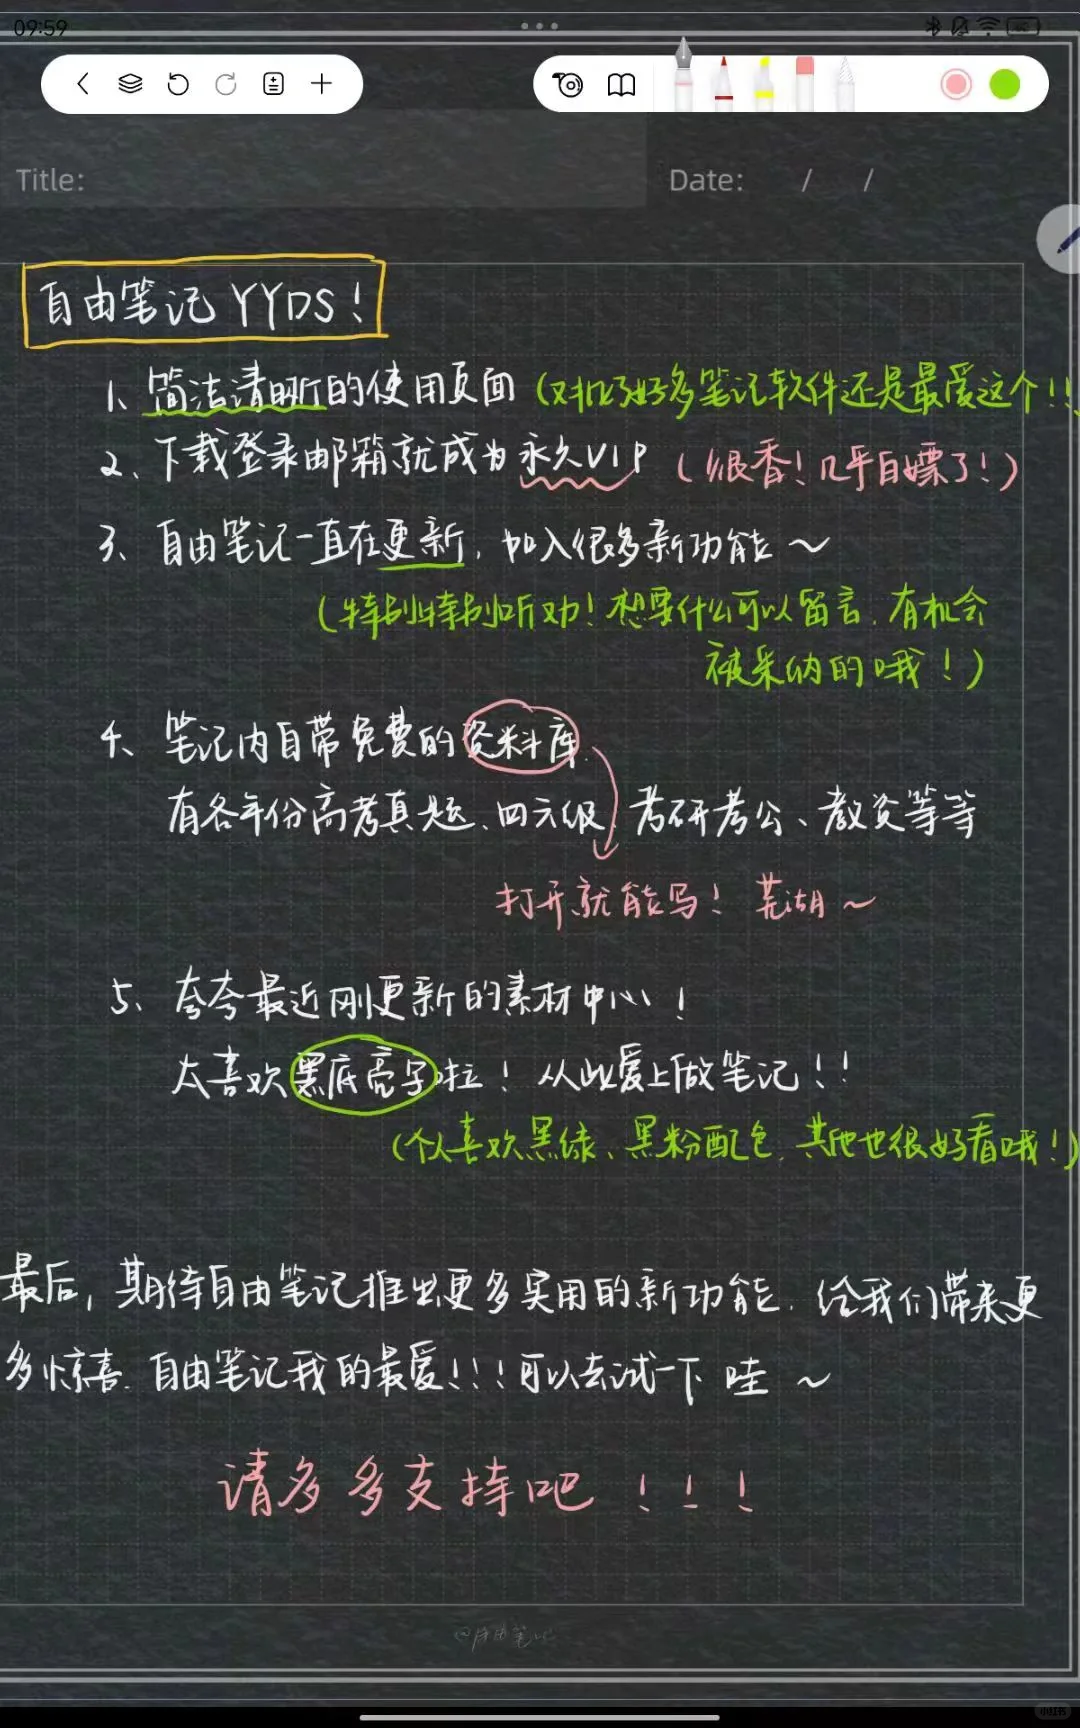 09:59
Title:
Date: / /
自由笔记YYDS！
1、简洁清晰的使用页面（对比好多笔记软件还是最爱这个！！
2、下载登录邮箱就成为永久VIP（很香！几乎白嫖了！）
3、自由笔记一直在更新，加入很多新功能～
（特别特别听劝！想要什么可以留言，有机会
被采纳的哦！）
4、笔记内自带免费的资料库
有各年份高考真题、四六级、考研考公、教资等等
打开就能写！芜湖～
5、夸夸最近刚更新的素材中心！
太喜欢黑底亮字啦！从此爱上做笔记！！
（个人喜欢黑绿、黑粉配色，其他也很好看哦！）
最后，期待自由笔记推出更多实用的新功能，给我们带来更
多惊喜.自由笔记我的最爱！！！可以去试一下哇～
请多多支持吧！！！
@自由笔记
小红书